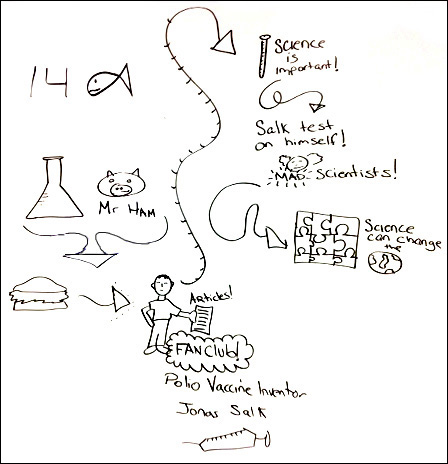 14
Mr HAM
Articles!
FANClub!
Polio Vaccine Inventor
Jonas Salk
Science
is
important!
Salk test
on himself!
MAD Scientists!
Science
can change
the